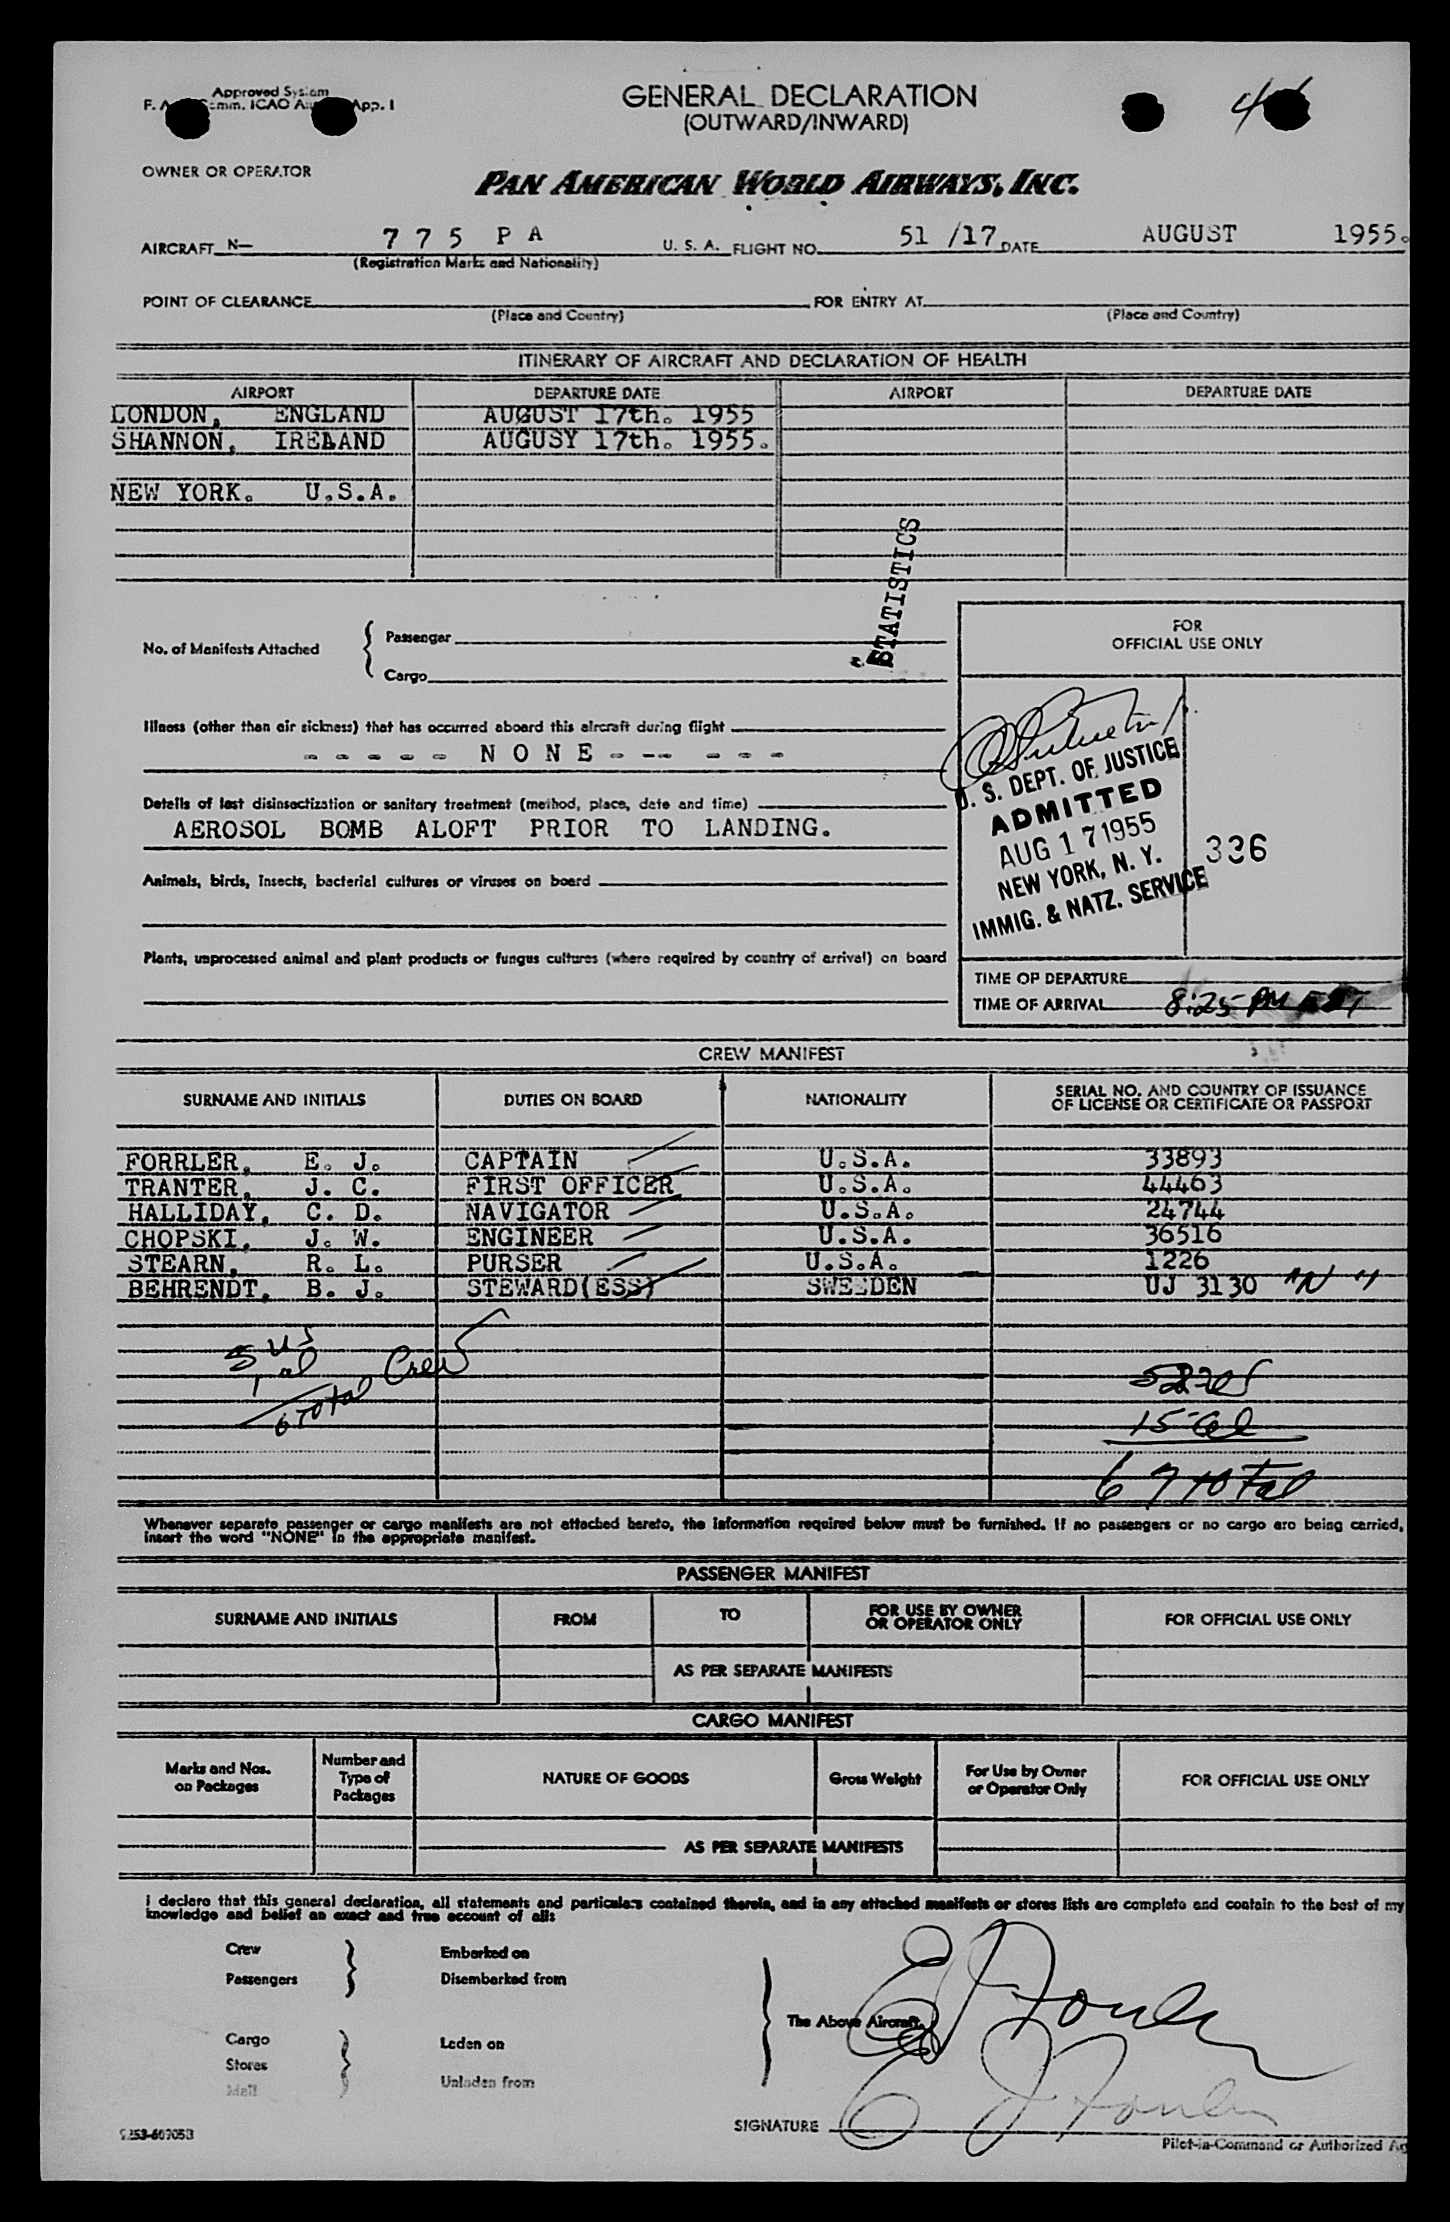 Approved System
F. A. Comm. ICAO App. I
GENERAL DECLARATION
(OUTWARD/INWARD)
OWNER OR OPERATOR
PAN AMERICAN WORLD AIRWAYS, INC.
AIRCRAFT N— 7 7 5 P A U. S. A. FLIGHT NO. 51 /17 DATE AUGUST 1955.
(Registration Marks and Nationality)
POINT OF CLEARANCE FOR ENTRY AT
(Place and Country) (Place and Country)
ITINERARY OF AIRCRAFT AND DECLARATION OF HEALTH
AIRPORT DEPARTURE DATE AIRPORT DEPARTURE DATE
LONDON, ENGLAND AUGUST 17th. 1955
SHANNON, IRELAND AUGUSY 17th. 1955.
NEW YORK. U.S.A.
STATISTICS
No. of Manifests Attached { Passenger
Cargo
FOR
OFFICIAL USE ONLY
Illness (other than air sickness) that has occurred aboard this aircraft during flight
- - - - - N O N E - -- - - -
Details of last disinsectization or sanitary treatment (method, place, date and time)
AEROSOL BOMB ALOFT PRIOR TO LANDING.
Animals, birds, insects, bacterial cultures or viruses on board
Plants, unprocessed animal and plant products or fungus cultures (where required by country of arrival) on board
U. S. DEPT. OF JUSTICE
ADMITTED
AUG 17 1955
NEW YORK, N. Y.
IMMIG. & NATZ. SERVICE
336
TIME OF DEPARTURE
TIME OF ARRIVAL 8:25 PM EST
CREW MANIFEST
SURNAME AND INITIALS DUTIES ON BOARD NATIONALITY SERIAL NO. AND COUNTRY OF ISSUANCE
OF LICENSE OR CERTIFICATE OR PASSPORT
FORRLER, E. J. CAPTAIN U.S.A. 33893
TRANTER, J. C. FIRST OFFICER U.S.A. 44463
HALLIDAY, C. D. NAVIGATOR U.S.A. 24744
CHOPSKI, J. W. ENGINEER U.S.A. 36516
STEARN, R. L. PURSER U.S.A. 1226
BEHRENDT, B. J. STEWARD(ESS) SWEDEN UJ 3130 "N"
5 US
1 al
6 Total Crew
15 al
67 total
Whenever separate passenger or cargo manifests are not attached hereto, the information required below must be furnished. If no passengers or no cargo are being carried,
insert the word "NONE" in the appropriate manifest.
PASSENGER MANIFEST
SURNAME AND INITIALS FROM TO FOR USE BY OWNER
OR OPERATOR ONLY FOR OFFICIAL USE ONLY
AS PER SEPARATE MANIFESTS
CARGO MANIFEST
Marks and Nos.
on Packages Number and
Type of
Packages NATURE OF GOODS Gross Weight For Use by Owner
or Operator Only FOR OFFICIAL USE ONLY
AS PER SEPARATE MANIFESTS
I declare that this general declaration, all statements and particulars contained therein, and in any attached manifests or stores lists are complete and contain to the best of my
knowledge and belief an exact and true account of all:
Crew } Embarked on
Passengers Disembarked from
The Above Aircraft.
Cargo
Stores } Laden on
Mail Unladen from
SIGNATURE
Pilot-in-Command or Authorized